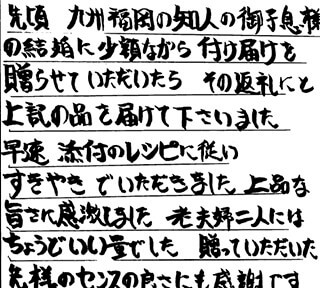 先頃 九州福岡の知人の御子息様
の結婚に少額ながら付け届けを
贈らせていただいたら その返礼にと
上記の品を届けて下さいました
早速 添付のレシピに従い
すきやきでいただきました 上品な
旨さに感激しました 老夫婦二人には
ちょうどいい量でした 贈っていただいた
先様のセンスの良さにも感謝です